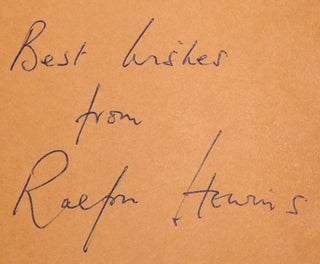 Best wishes
from
Ralph Hewins